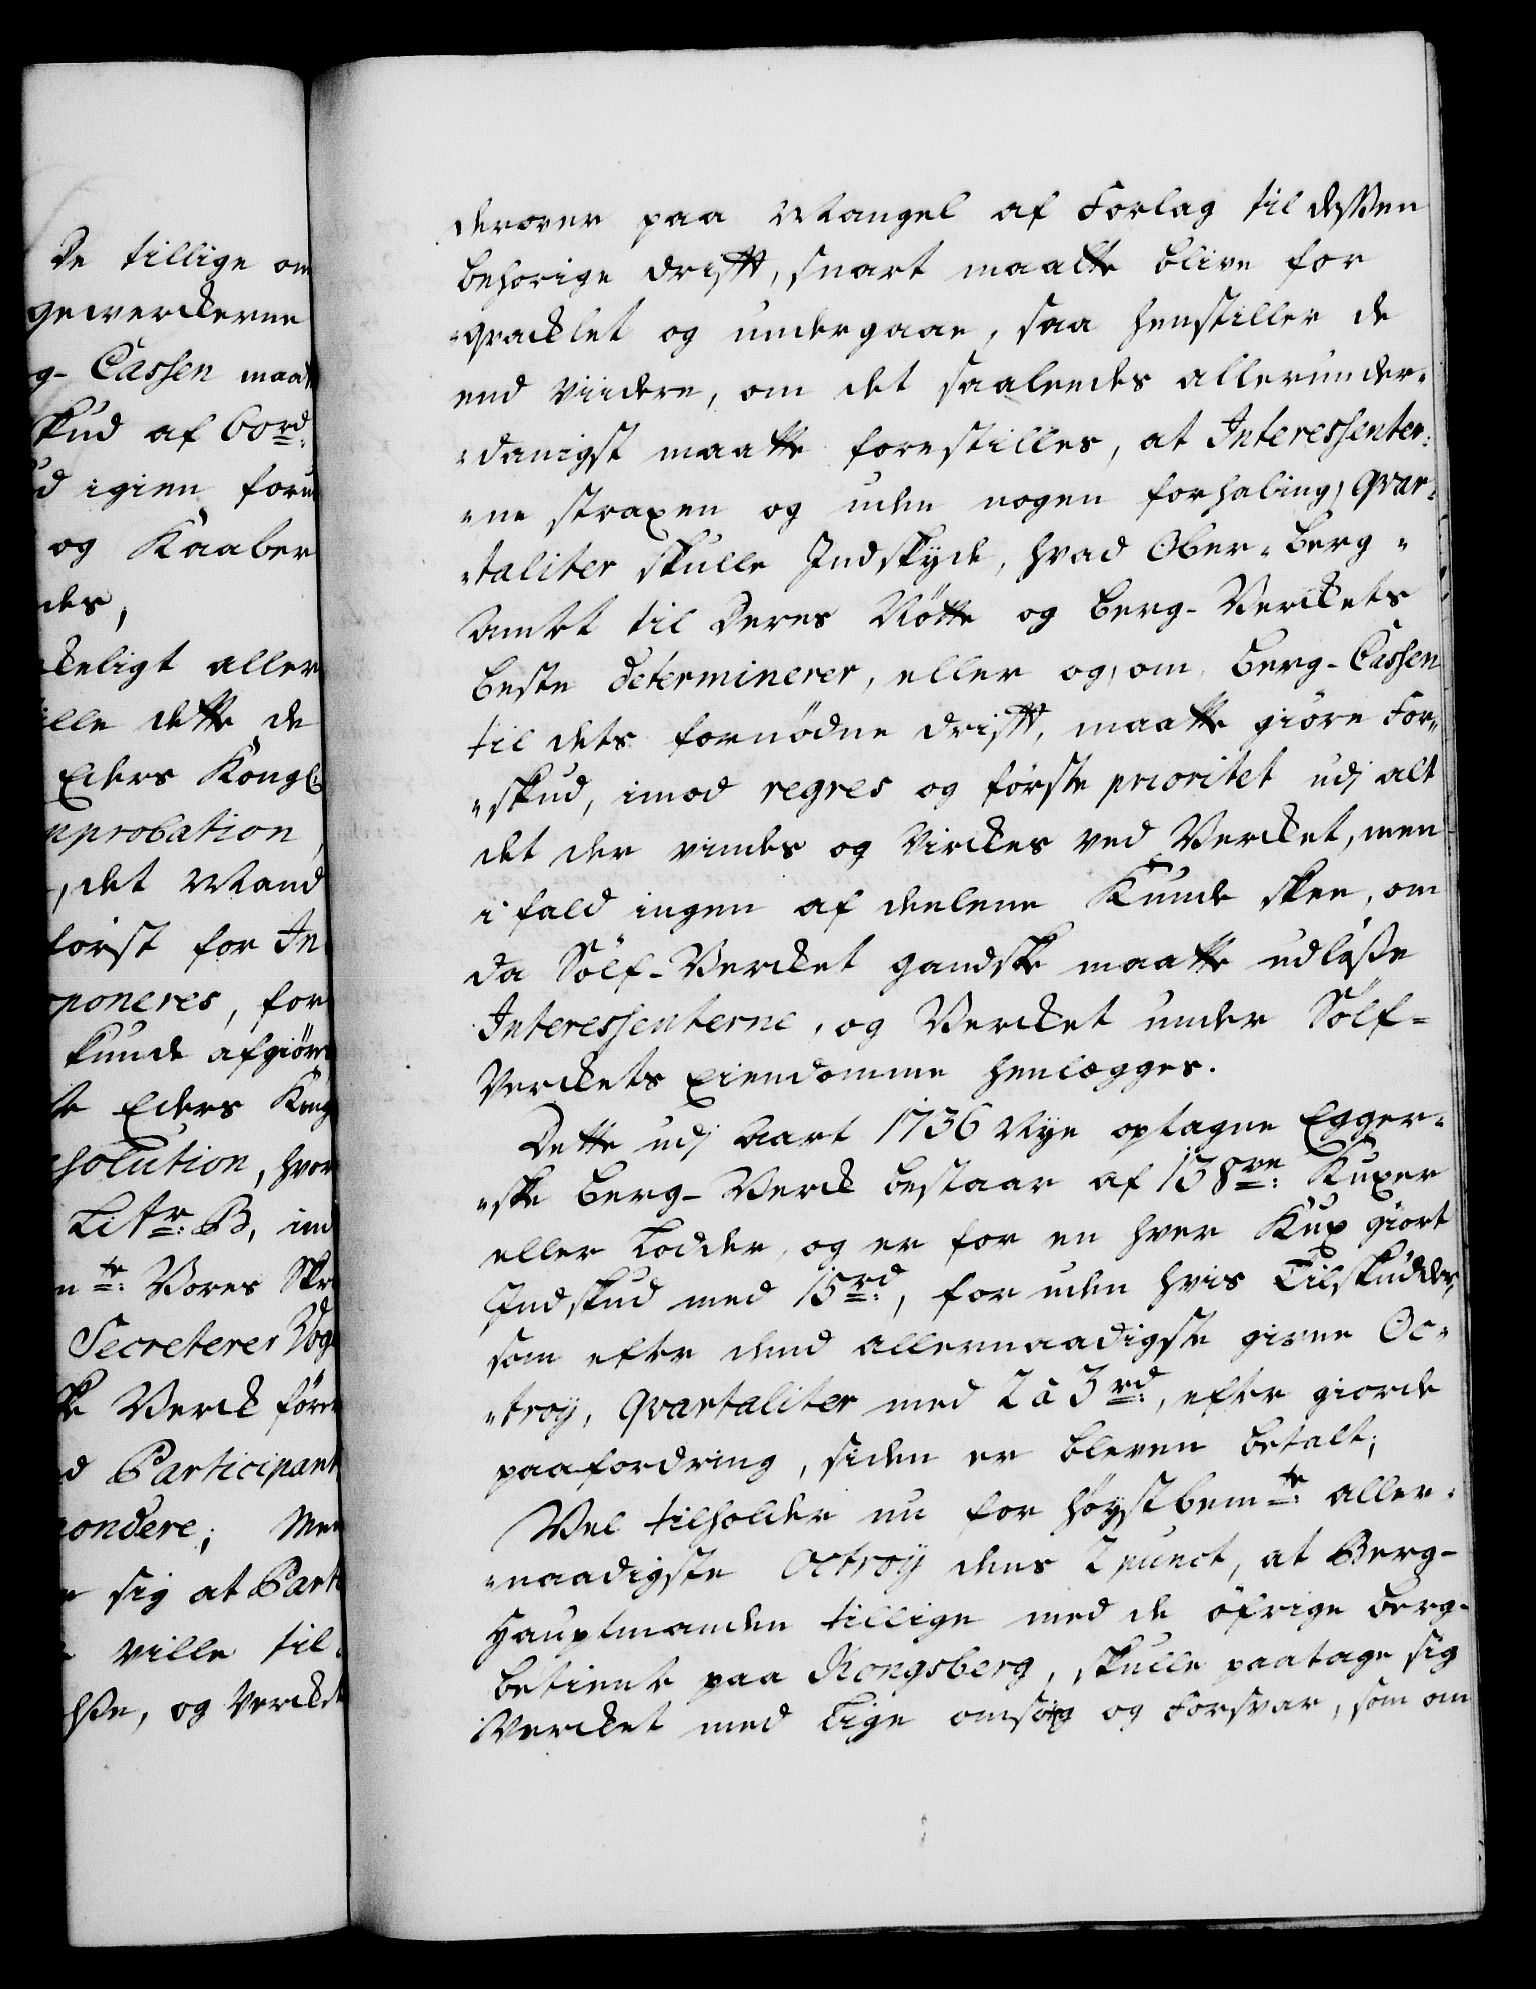 De tillige om
gewerckerne
g- Cassen maat
skud af 60rd:
d igien for
og Kaaber
des,
keligt aller
ille dette de
Eders Kongl:
pprobation,
, det Mand
först for In
poneres, for
kunde afgiöre
te Eders Kong
solution, hvor
Litr: B, ind
nte: Vores Skr
Secreterer Vog
ke Verck före
d Participant
pondere; Men
e sig at Parti
ville til
sse, og Verckt
derover paa Mangel af Forlag til dessen
behörige drifft, snart maatte blive for
-qvacklet og undergaae, saa henstiller de
end viidere, om det saaleedes allerunder-
-danigst maatte forestilles, at Interessenter-
-ne straxen og uden nogen forhaling, Qvar-
-taliter skulle Indskyde, hvad Ober-Berg-
Amtet til Deres Nötte og Berg-Verckets
beste determinerer, eller og, om Berg-Cassen
til dets fornödne drifft, maatte giöre For-
-skud, imod regres og förste prioritet udj alt
det der vindes og Virckes ved Vercket, men
i fald ingen af deelene Kunde skee, om
da Sölf-Vercket gandske maatte udlösse
Interessenterne, og Vercket under Sölf-
Verckets Eiendomme henlægges.
Dette udj Aart 1736 Nye optagne Egger-
-ske Berg-Verck bestaar af 138ve: Kuxer
eller Lodder, og er for en hver Kux giort
Indskud med 15rd:, for uden hvis Tilskudder,
som efter dend allernaadigste givne Oc-
-troy, Qvartaliter med 2 à 3rd:, efter giorde
paafordring, siden er bleven betalt;
Vel tilholder nu for höystbemte: aller-
-naadigste Octroy dens 2 punct, at Berg-
Hauptmanden tillige med de öfrige Berg-
betiente paa Kongsberg, skulle paatage sig
Vercket med Lige omsorg og Forsvar, som om